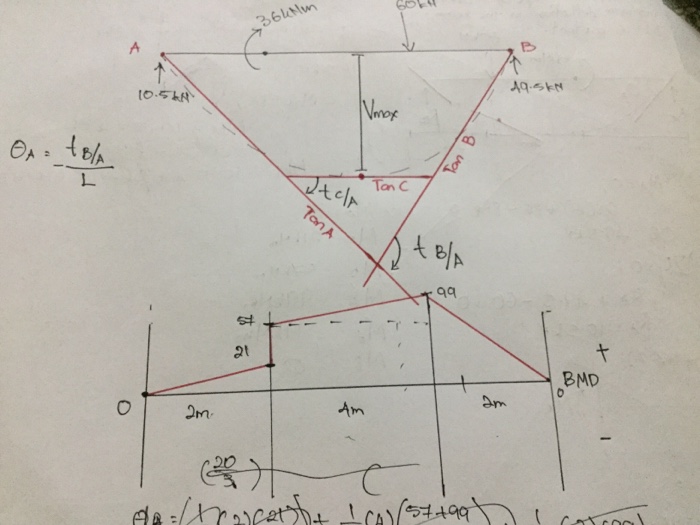 36kNm
60kN
A
B
10.5kN
49.5kN
Vmax
θA = - tB/A / L
Tan B
Tan C
tC/A
Tan A
tB/A
99
57
21
+
0
0 BMD
2m
4m
2m
-
(20/3) (